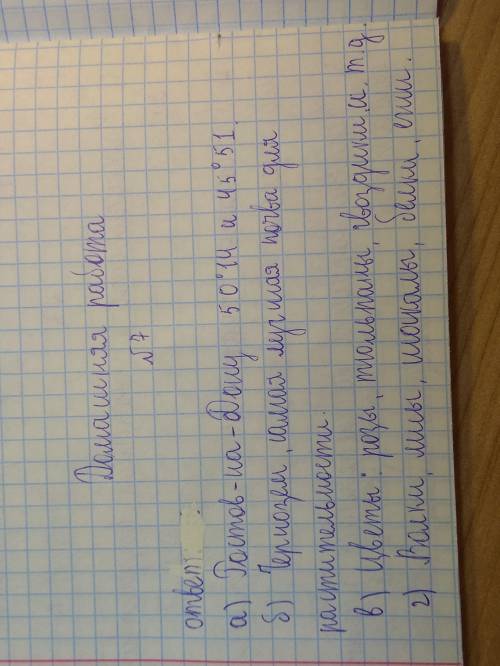 Домашняя работа
№7
ответ:
а) Ростов-на-Дону 50°14 и 45°51.
б) Чернозем, самая лучшая почва для
растительности.
в) Цветы: розы, тюльпаны, гвоздики и т.д.
г) Волки, лисы, шакалы, белки, ежи.